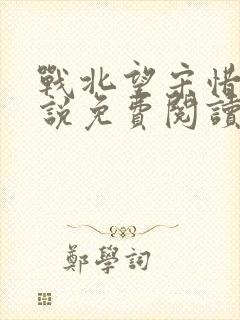 戰北望宋惜
說免費閱讀
鄭學詞